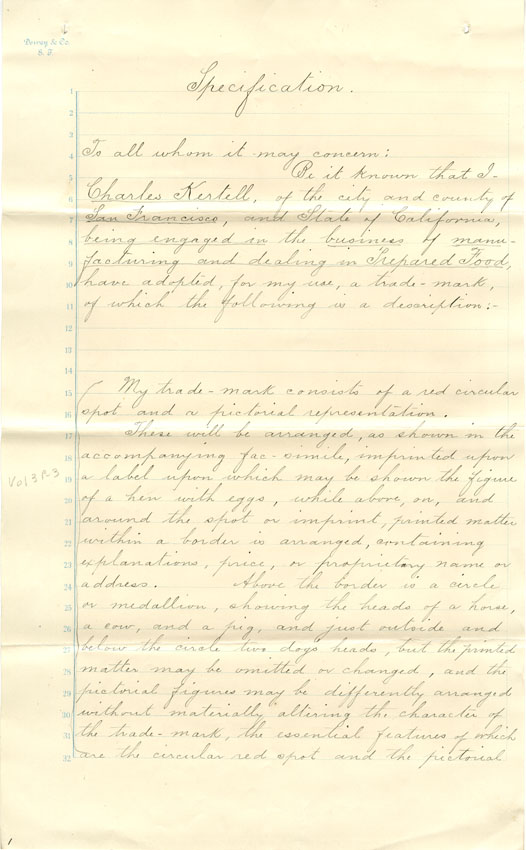 Dewey & Co.
S. F.
Specification.
To all whom it may concern:
Be it known that I-
Charles Kertell, of the city and county of
San Francisco, and State of California,
being engaged in the business of manu-
facturing and dealing in Prepared Food,
have adopted, for my use, a trade-mark,
of which the following is a description:-
My trade-mark consists of a red circular
spot and a pictorial representation.
These will be arranged, as shown in the
accompanying fac-simile, imprinted upon
a label upon which may be shown the figure
of a hen with eggs, while above, on, and
around the spot or imprint, printed matter
within a border is arranged, containing
explanations, price, or proprietary name or
address. Above the border is a circle
or medallion, showing the heads of a horse,
a cow, and a pig, and just outside and
below the circle two dogs heads, but the printed
matter may be omitted or changed, and the
pictorial figures may be differently arranged
without materially altering the character of
the trade-mark, the essential features of which
are the circular red spot and the pictorial
Vol 3 P. 3
1
2
3
4
5
6
7
8
9
10
11
12
13
14
15
16
17
18
19
20
21
22
23
24
25
26
27
28
29
30
31
32